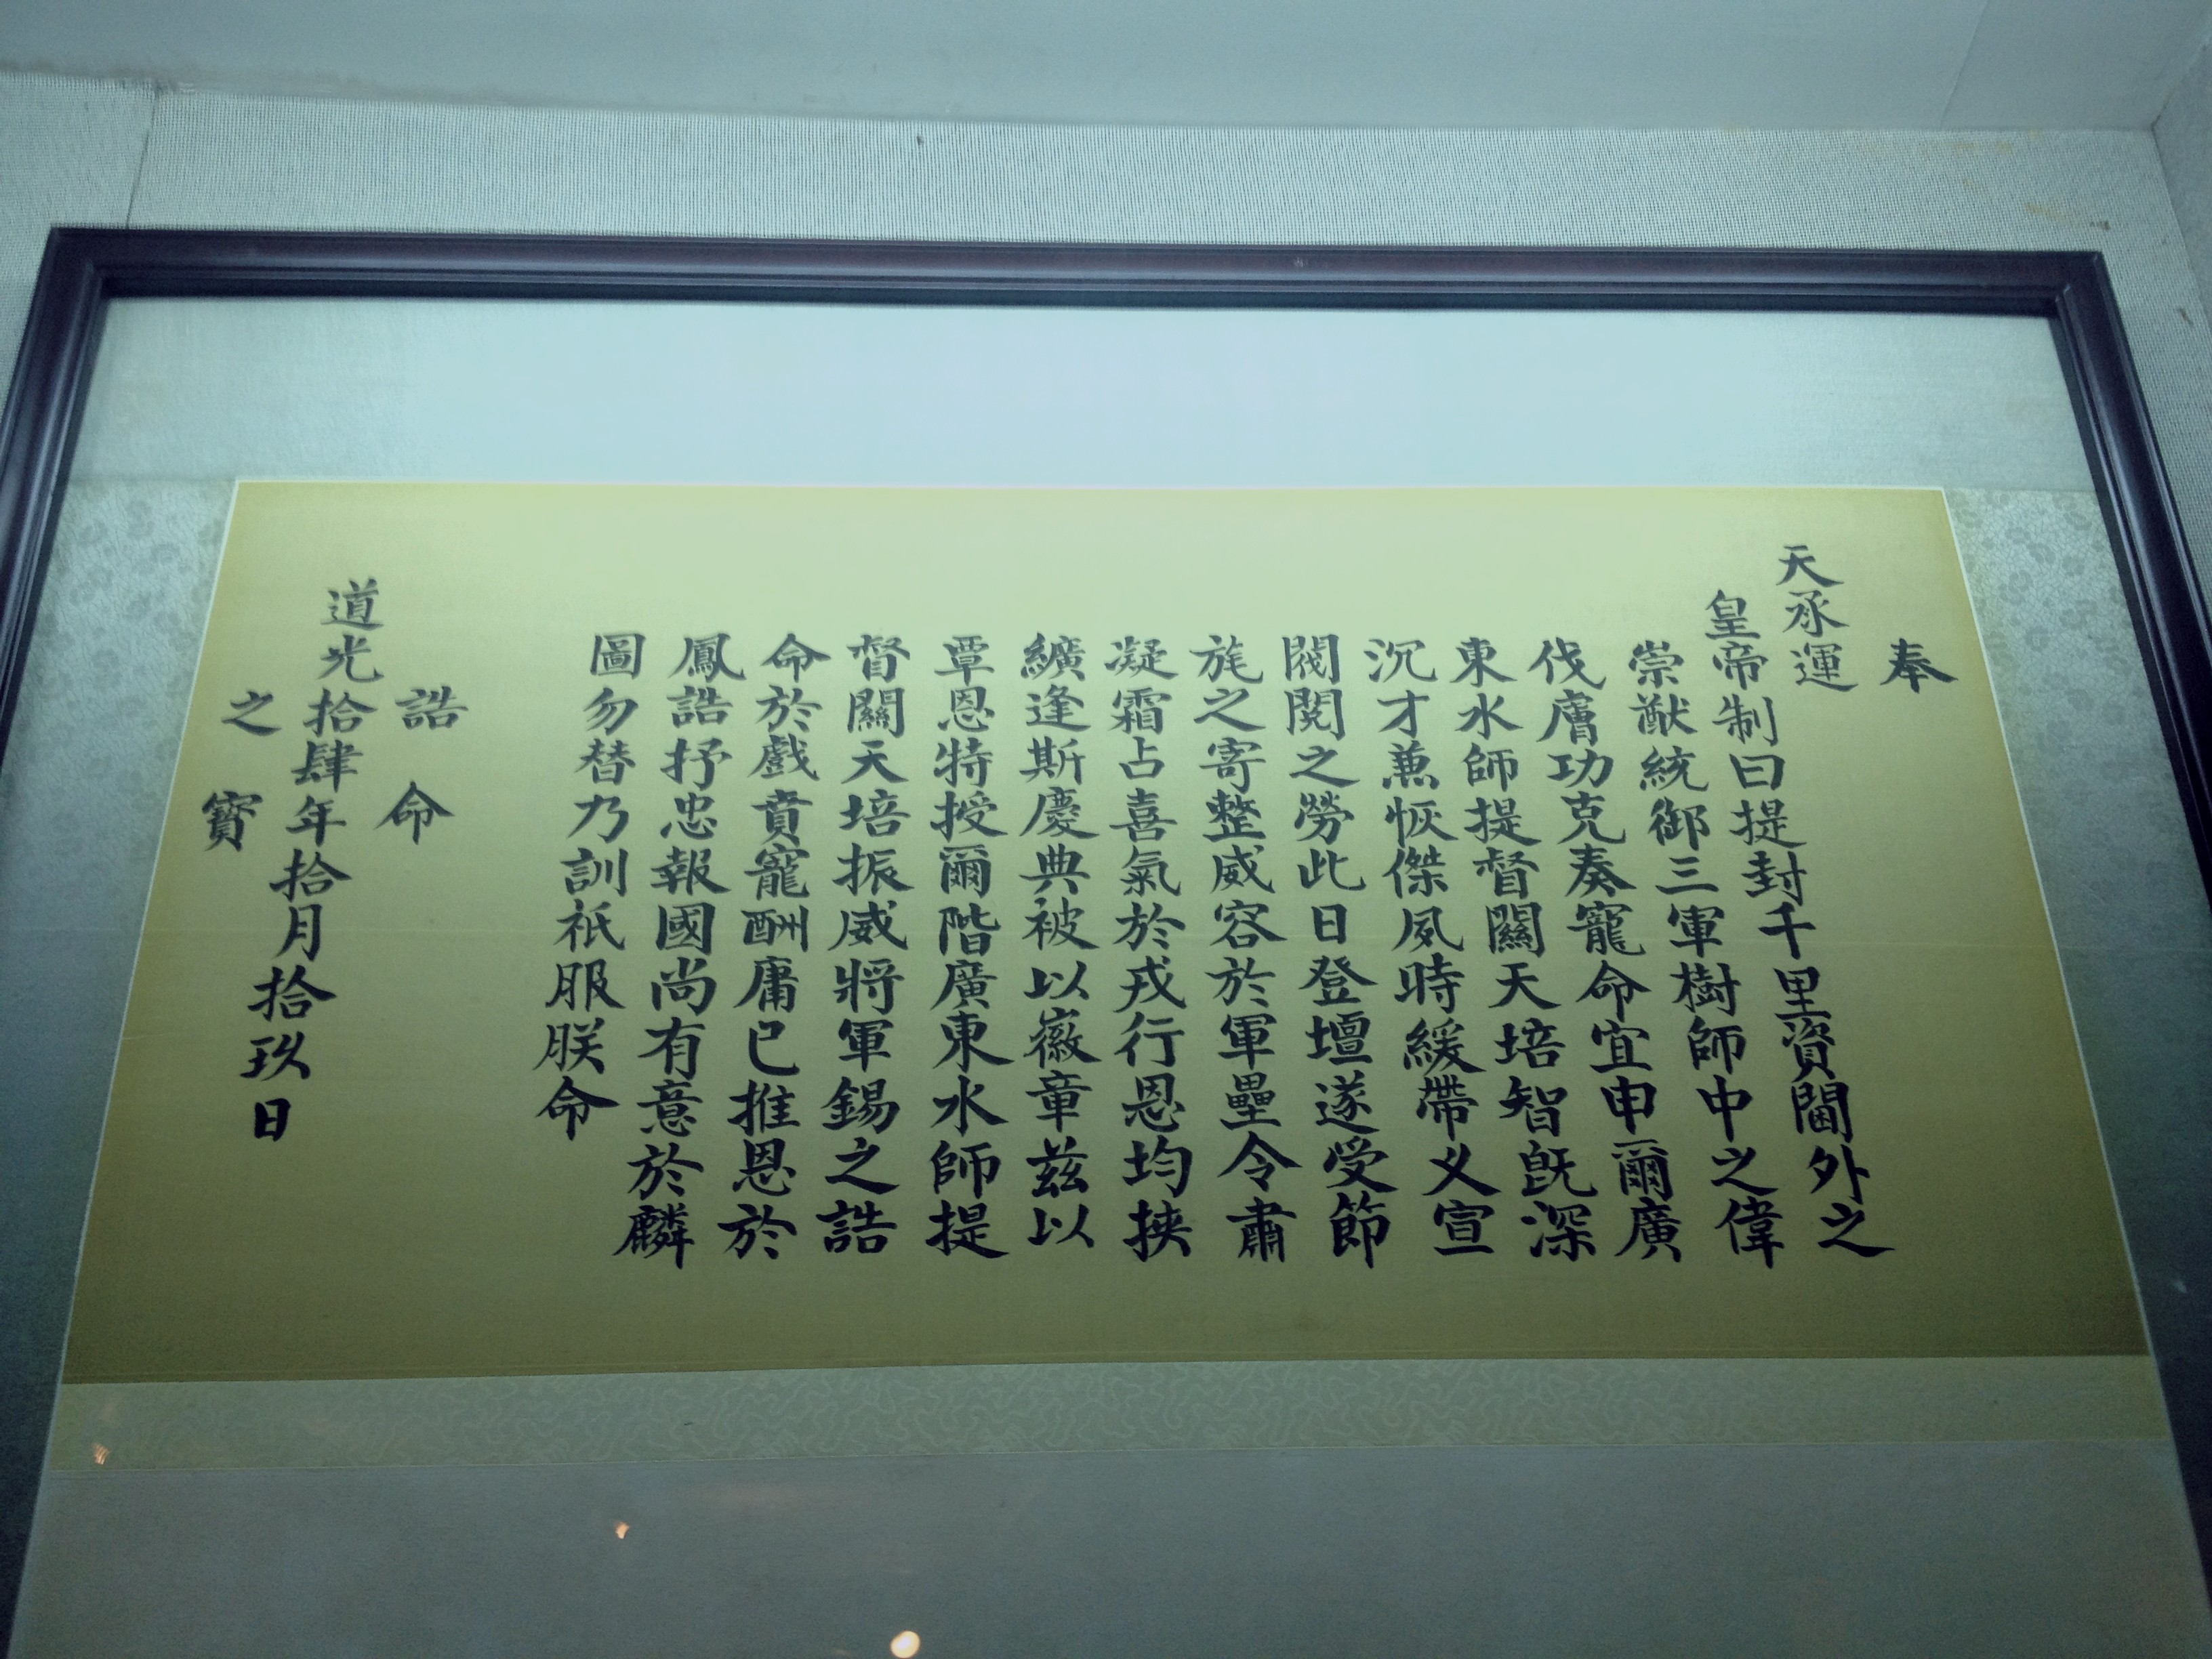 奉
天承運
皇帝制曰提封千里資閫外之
崇猷統御三軍樹師中之偉
伐膚功克奏寵命宜申爾廣
東水師提督關天培智既深
沉才兼恢傑夙時緩帶乂宣
閥閱之勞此日登壇遂受節
旄之寄整威容於軍壘令肅
凝霜占喜氣於戎行恩均挾
纊逢斯慶典被以徽章茲以
覃恩特授爾階廣東水師提
督關天培振威將軍錫之誥
命於戲賁寵酬庸已推恩於
鳳誥抒忠報國尚有意於麟
圖勿替乃訓祇服朕命
誥命
道光拾肆年拾月拾玖日
之寶